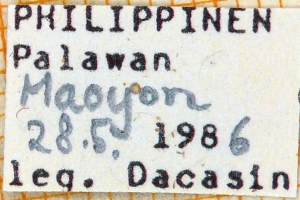 PHILIPPINEN
Palawan
Maoyon
28.5. 1986
leg. Dacasin